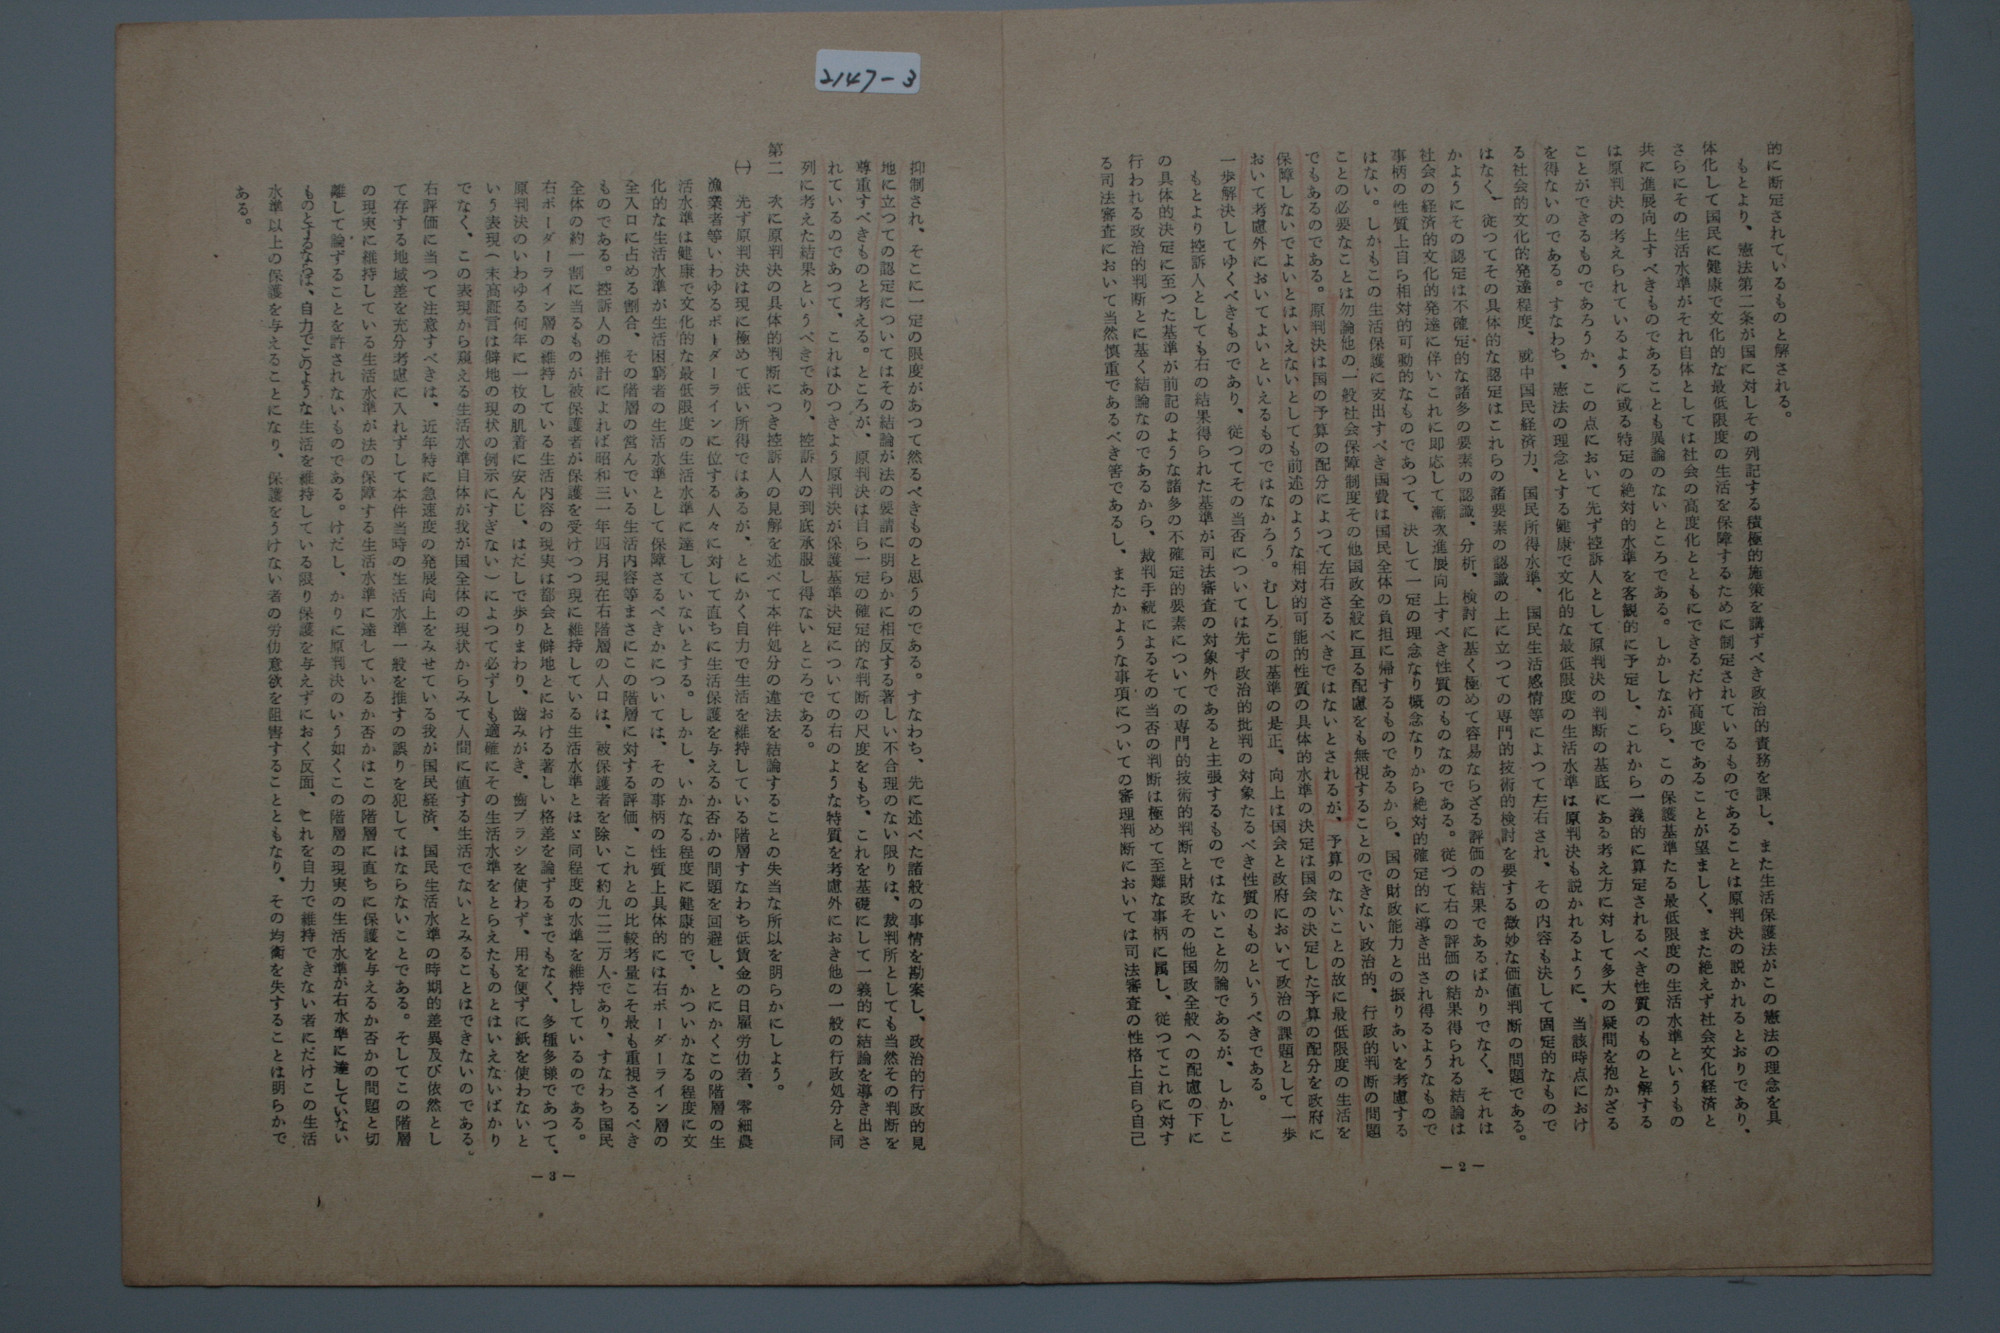 2147-3
的に断定されているものと解される。
もとより、憲法第二条が国に対しその列記する積極的施策を講ずべき政治的責務を課し、また生活保護法がこの憲法の理念を具
体化して国民に健康で文化的な最低限度の生活を保障するために制定されているものであることは原判決の説かれるとおりであり、
さらにその生活水準がそれ自体としては社会の高度化とともにできるだけ高度であることが望ましく、また絶えず社会文化経済と
共に進展向上すべきものであることも異論のないところである。しかしながら、この保護基準たる最低限度の生活水準というもの
は原判決の考えられているように或る特定の絶対的水準を客観的に予定し、これから一義的に算定されるべき性質のものと解する
ことができるものであろうか、この点において先ず控訴人として原判決の判断の基底にある考え方に対して多大の疑問を抱かざる
を得ないのである。すなわち、憲法の理念とする健康で文化的な最低限度の生活水準は原判決も説かれるように、当該時点におけ
る社会的文化的発達程度、就中国民経済力、国民所得水準、国民生活感情等によつて左右され、その内容も決して固定的なもので
はなく、従つてその具体的な認定はこれらの諸要素の認識の上に立つての専門的技術的検討を要する微妙な価値判断の問題である。
かようにその認定は不確定的な諸多の要素の認識、分析、検討に基く極めて容易ならざる評価の結果であるばかりでなく、それは
社会の経済的文化的発達に伴いこれに即応して漸次進展向上すべき性質のものなのである。従つて右の評価の結果得られる結論は
事柄の性質上自ら相対的可動的なものであつて、決して一定の理念なり概念なりから絶対的確定的に導き出され得るようなもので
はない。しかもこの生活保護に支出すべき国費は国民全体の負担に帰するものであるから、国の財政能力との振りあいを考慮する
ことの必要なことは勿論他の一般社会保障制度その他国政全般に亘る配慮をも無視することのできない政治的、行政的判断の問題
でもあるのである。原判決は国の予算の配分によつて左右さるべきではないとされるが、予算のないことの故に最低限度の生活を
保障しないでよいとはいえないとしても前述のような相対的可能的性質の具体的水準の決定は国会の決定した予算の配分を政府に
おいて考慮外においてよいといえるものではなかろう。むしろこの基準の是正、向上は国会と政府において政治の課題として一歩
一歩解決してゆくべきものであり、従つてその当否については先ず政治的批判の対象たるべき性質のものというべきである。
もとより控訴人としても右の結果得られた基準が司法審査の対象外であると主張するものではないこと勿論であるが、しかしこ
の具体的決定に至つた基準が前記のような諸多の不確定的要素についての専門的技術的判断と財政その他国政全般への配慮の下に
行われる政治的判断とに基く結論なのであるから、裁判手続によるその当否の判断は極めて至難な事柄に属し、従つてこれに対す
る司法審査において当然慎重であるべき筈であるし、またかような事項についての審理判断においては司法審査の性格上自ら自己
— 2 —
抑制され、そこに一定の限度があつて然るべきものと思うのである。すなわち、先に述べた諸般の事情を勘案し、政治的行政的見
地に立つての認定についてはその結論が法の要請に明らかに相反する著しい不合理のない限りは、裁判所としても当然その判断を
尊重すべきものと考える。ところが、原判決は自ら一定の確定的な判断の尺度をもち、これを基礎にして一義的に結論を導き出さ
れているのであつて、これはひつきよう原判決が保護基準決定についての右のような特質を考慮外におき他の一般の行政処分と同
列に考えた結果というべきであり、控訴人の到底承服し得ないところである。
第二 次に原判決の具体的判断につき控訴人の見解を述べて本件処分の違法を結論することの失当な所以を明らかにしよう。
㈠ 先ず原判決は現に極めて低い所得ではあるが、とにかく自力で生活を維持している階層すなわち低賃金の日雇労仂者、零細農
漁業者等いわゆるボーダーラインに位する人々に対して直ちに生活保護を与えるか否かの問題を回避し、とにかくこの階層の生
活水準は健康で文化的な最低限度の生活水準に達していないとする。しかし、いかなる程度に健康的で、かついかなる程度に文
化的な生活水準が生活困窮者の生活水準として保障さるべきかについては、その事柄の性質上具体的には右ボーダーライン層の
全人口に占める割合、その階層の営んでいる生活内容等まさにこの階層に対する評価、これとの比較考量こそ最も重視さるべき
ものである。控訴人の推計によれば昭和三一年四月現在右階層の人口は、被保護者を除いて約九二二万人であり、すなわち国民
全体の約一割に当るものが被保護者が保護を受けつつ現に維持している生活水準とほゞ同程度の水準を維持しているのである。
右ボーダーライン層の維持している生活内容の現実は部会と僻地とにおける著しい格差を論ずるまでもなく、多種多様であつて、
原判決のいわゆる何年に一枚の肌着に安んじ、はだしで歩りまわり、歯みがき、歯ブラシを使わず、用を便ずに紙を使わないと
いう表現(末高証言は僻地の現状の例示にすぎない)によつて必ずしも適確にその生活水準をとらえたものとはいえないばかり
でなく、この表現から窺える生活水準自体が我が国全体の現状からみて人間に値する生活でないとみることはできないのである。
右評価に当つて注意すべきは、近年特に急速度の発展向上をみせている我が国民経済、国民生活水準の時期的差異及び依然とし
て存する地域差を充分考慮に入れずして本件当時の生活水準一般を推すの誤りを犯してはならないことである。そしてこの階層
の現実に維持している生活水準が法の保障する生活水準に達しているか否かはこの階層に直ちに保護を与えるか否かの問題と切
離して論ずることを許されないものである。けだし、かりに原判決のいう如くこの階層の現実の生活水準が右水準に達していない
ものとするならば、自力でこのような生活を維持している限り保護を与えずにおく反面、これを自力で維持できない者にだけこの生活
水準以上の保護を与えることになり、保護をうけない者の労仂意欲を阻害することともなり、その均衡を失することは明らかで
ある。
— 3 —